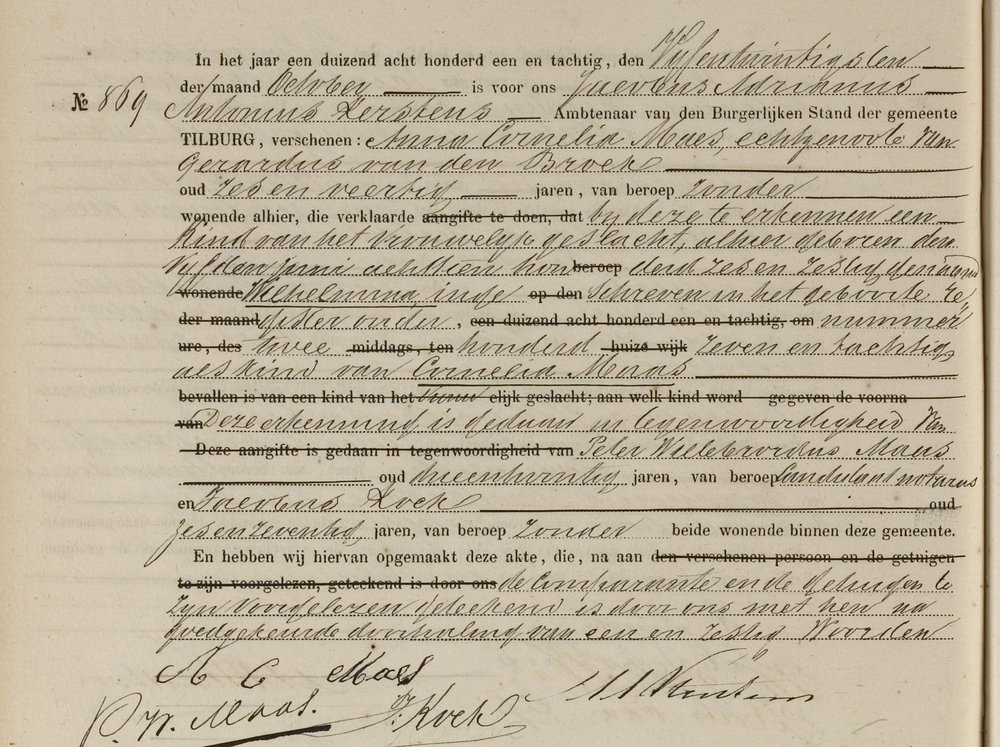 In het jaar een duizend acht honderd een en tachtig, den Vyfentwintigsten
der maand October is voor ons Jacobus Adrianus
№ 869 Antonius Kerstens Ambtenaar van den Burgerlijken Stand der gemeente
TILBURG, verschenen: Anna Cornelia Maes, echtgenoote van
Gerardus van den Broek
oud zes en veertig jaren, van beroep zonder
wonende alhier, die verklaarde aangifte te doen, dat by deze te erkennen een
kind van het vrouwelyk geslacht, alhier geboren den
Vyfden Juni achttien hon beroep derd zes en zestig genaamd
wonende Wilhelmina, inge op den schreven in het geboorte re
der maand gister onder, een duizend acht honderd een en tachtig, om nummer
ure, des twee middags, ten honderd huize wijk zeven en tachtig
als kind van Cornelia Maas
bevallen is van een kind van het elijk geslacht; aan welk kind word gegeven de voorna
van Deze erkenning is gedaan in tegenwoordigheid van
Deze aangifte is gedaan in tegenwoordigheid van Peter Willebrordus Maas
oud drieentwintig jaren, van beroep Candidaat notaris
en Jacobus Kock oud
zesenzeventig jaren, van beroep zonder beide wonende binnen deze gemeente.
En hebben wij hiervan opgemaakt deze akte, die, na aan den verschenen persoon en de getuigen
te zijn voorgelezen, geteekend is door ons de Comparante en de getuigen te
zyn voorgelezen geteekend is door ons met hen na
goedgekeurde doorhaling van een en zestig woorden
A C Maes
P. W. Maas. J: Kock